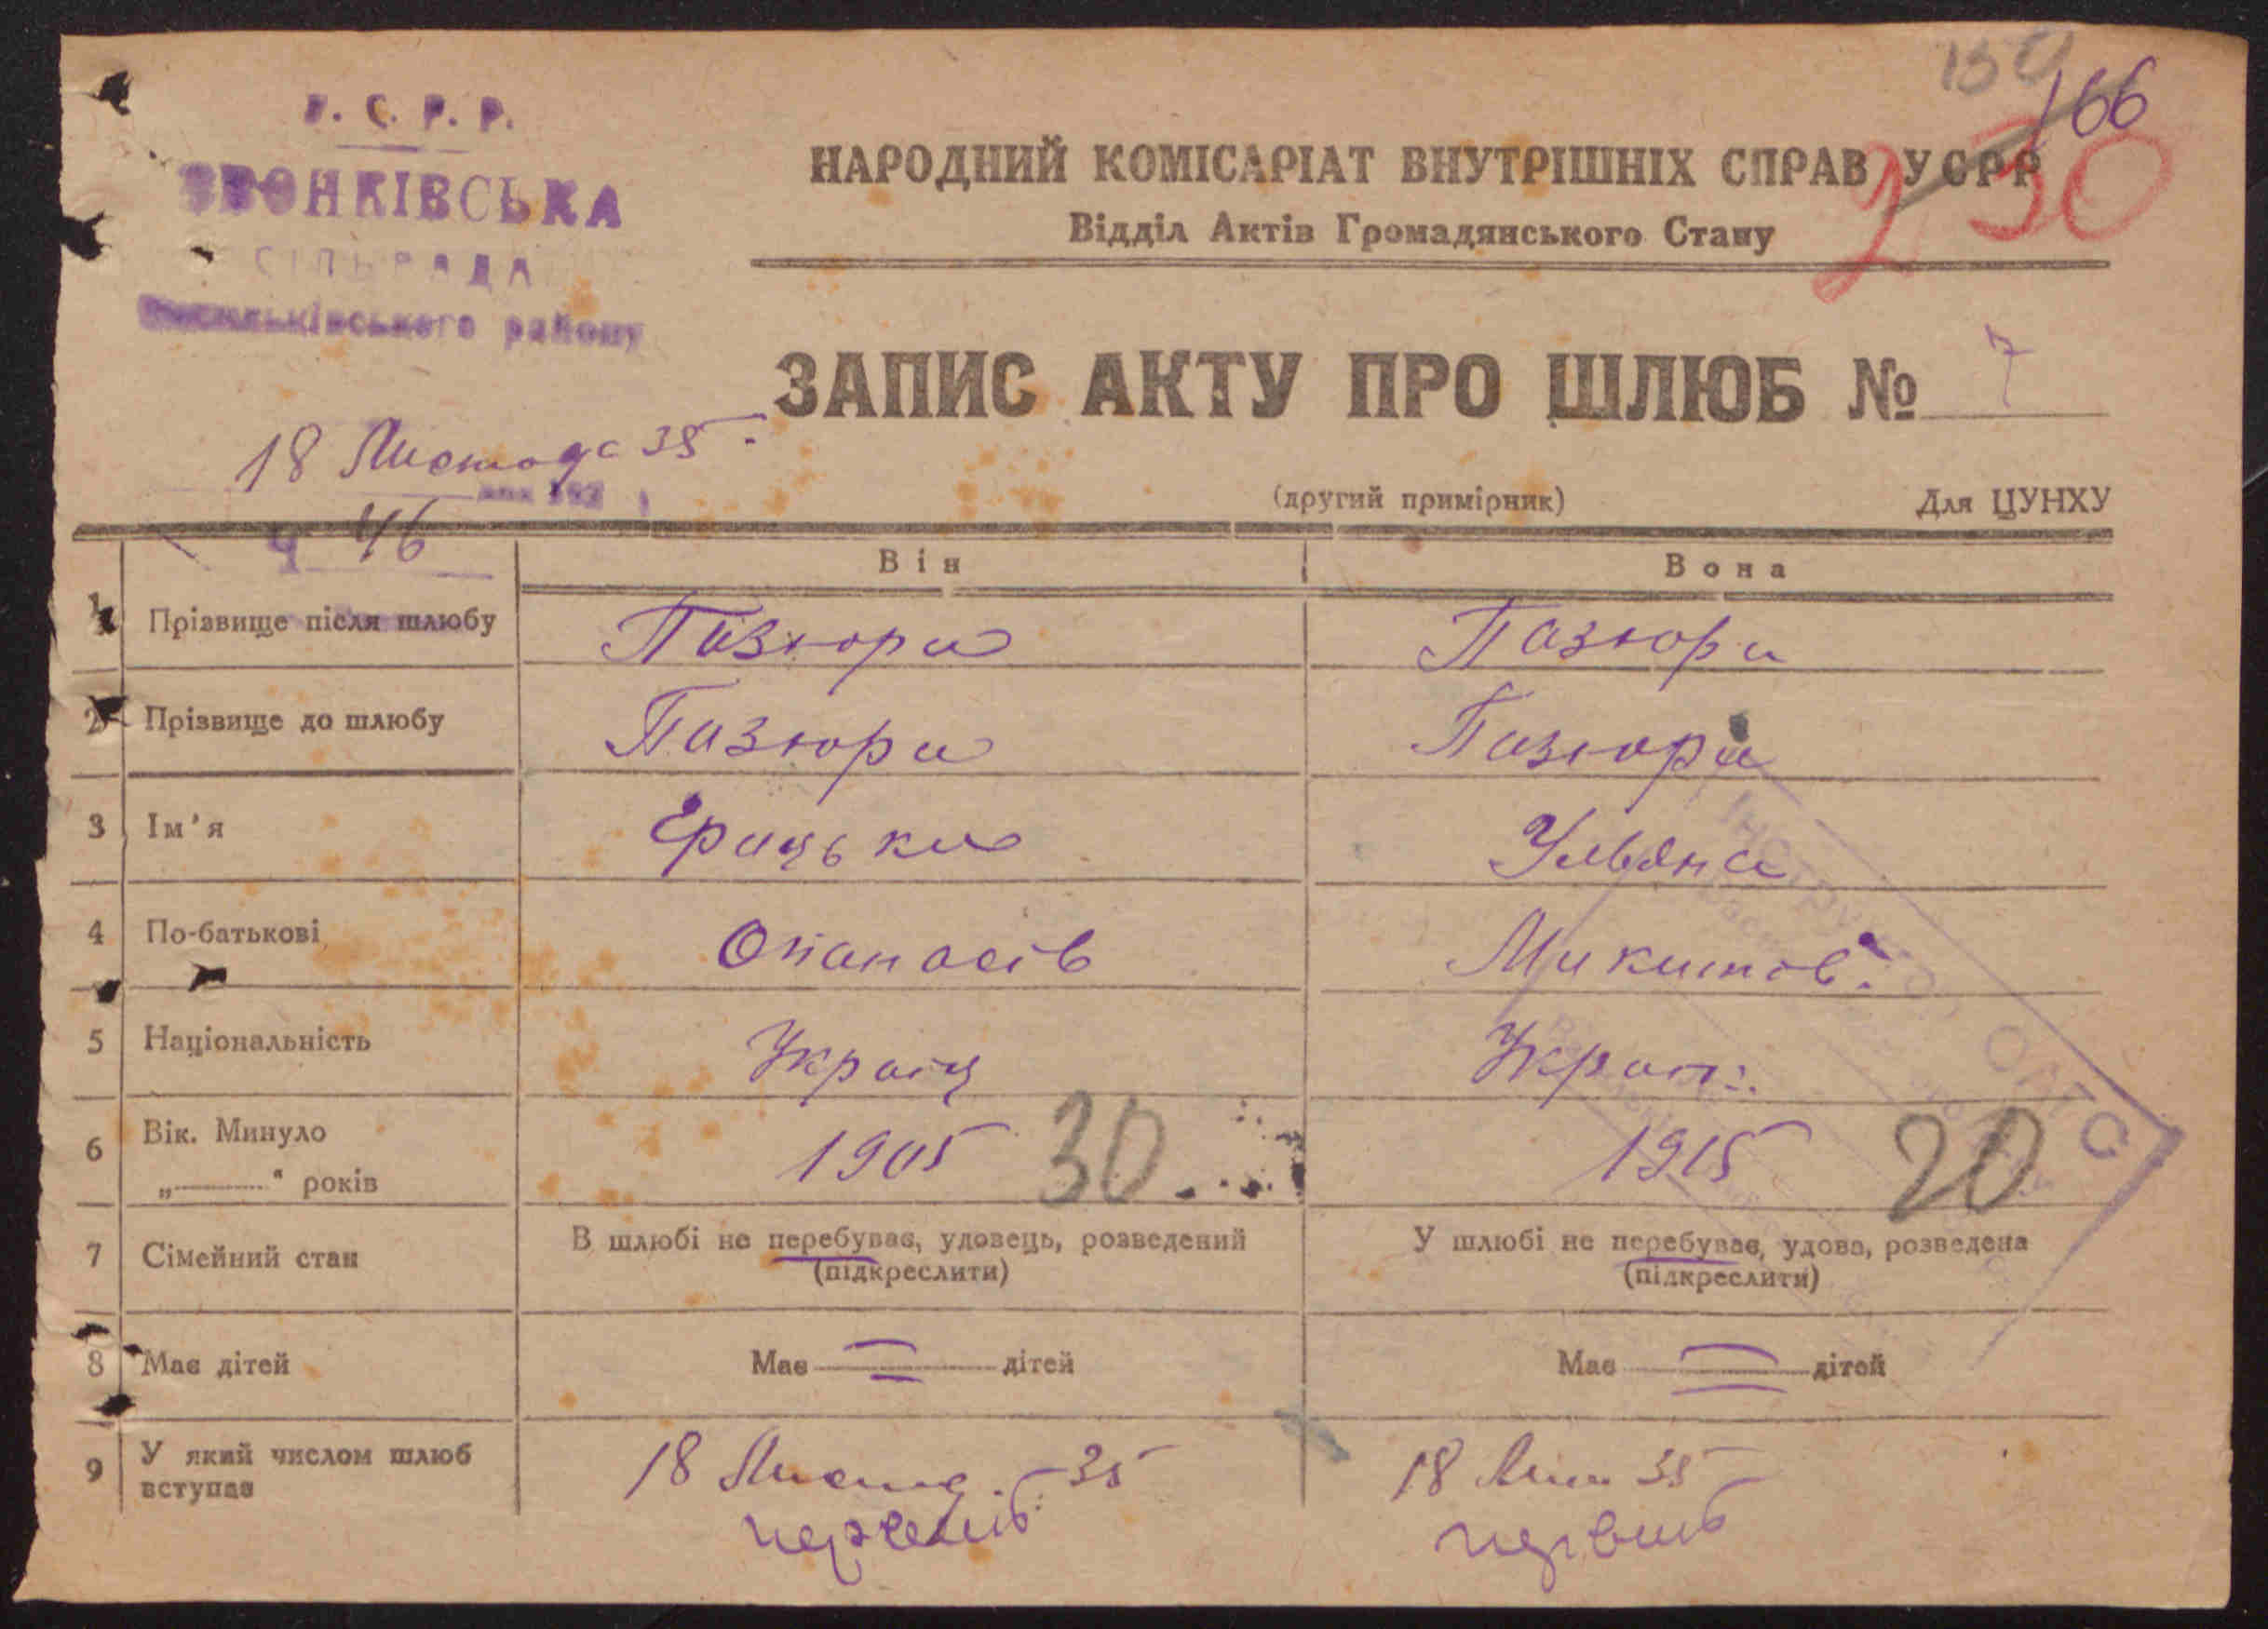 У. С. Р. Р.
ЗВОНКІВСЬКА
СІЛЬРАДА
Васильківського району
150
166
230
НАРОДНИЙ КОМІСАРІАТ ВНУТРІШНІХ СПРАВ УСРР
Відділ Актів Громадянського Стану
ЗАПИС АКТУ ПРО ШЛЮБ № 7
18 Листопада 35
46
(другий примірник) Для ЦУНХУ
Він Вона
1 Прізвище після шлюбу Пазюра Пазюра
2 Прізвище до шлюбу Пазюра Пазюра
3 Ім'я Грицько Уляна
4 По-батькові Опанасів Микитов.
5 Національність Україц Украп.
6 Вік. Минуло 1905 30 1915 20
„ “ років
7 Сімейний стан В шлюбі не перебуває, удовець, розведений У шлюбі не перебуває, удова, розведена
(підкреслити) (підкреслити)
8 Має дітей Має — дітей Має — дітей
9 У який числом шлюб 18 Листоп. 35 18 Лист 35
вступає